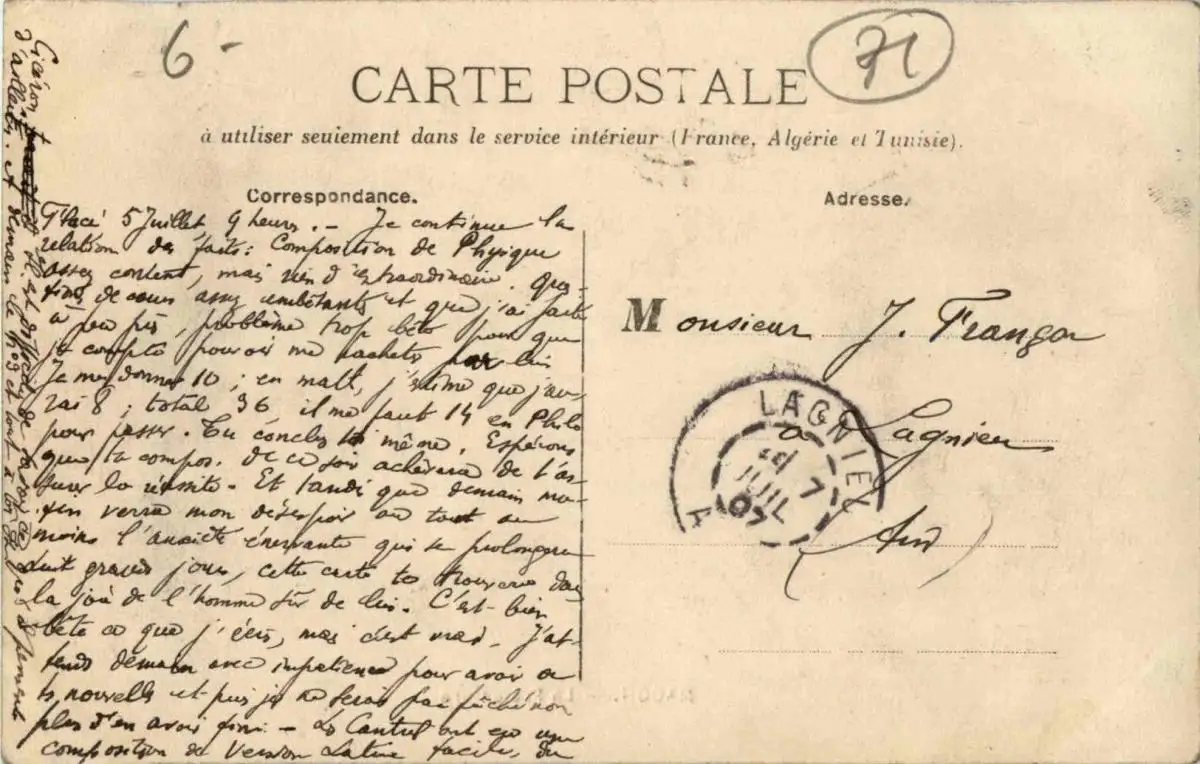 6 -
71
CARTE POSTALE
à utiliser seulement dans le service intérieur (France, Algérie et Tunisie).
Correspondance.
Adresse.
5 Juillet 9 heures. - Je continue la
relation des faits : Composition de Physique
assez content, mais rien d'extraordinaire. Ques-
tions de cours assez embêtants et que j'ai faits
à peu près, problème trop bête pour que
je compte pouvoir me racheter par lui
Je me donne 10 ; en math, j'estime que j'au-
rai 8 ; total 36, il me faut 14 en Philo
pour passer. Tu conclus toi même. Espérons
que ta compos. de ce soir achèvera de t'as-
surer la réussite - Et tandis que demain ma-
tin verra mon désespoir ou tout au
moins l'anxiété énervante qui se prolongera
huit grands jours, cette carte te trouvera dans
la joie de l'homme sûr de lui. C'est bien
bête ce que j'écris, mais c'est vrai. J'at-
tends demain avec impatience pour avoir de
tes nouvelles et puis je ne serai pas fâché non
plus d'en avoir fini - Les ont eu une
composition de Version Latine facile, du
Cicéron
d'ailleurs. A demain le
Monsieur J. Frangon
à Lagnieu
(Ain)
LAGNIEU
7
JUIL
07